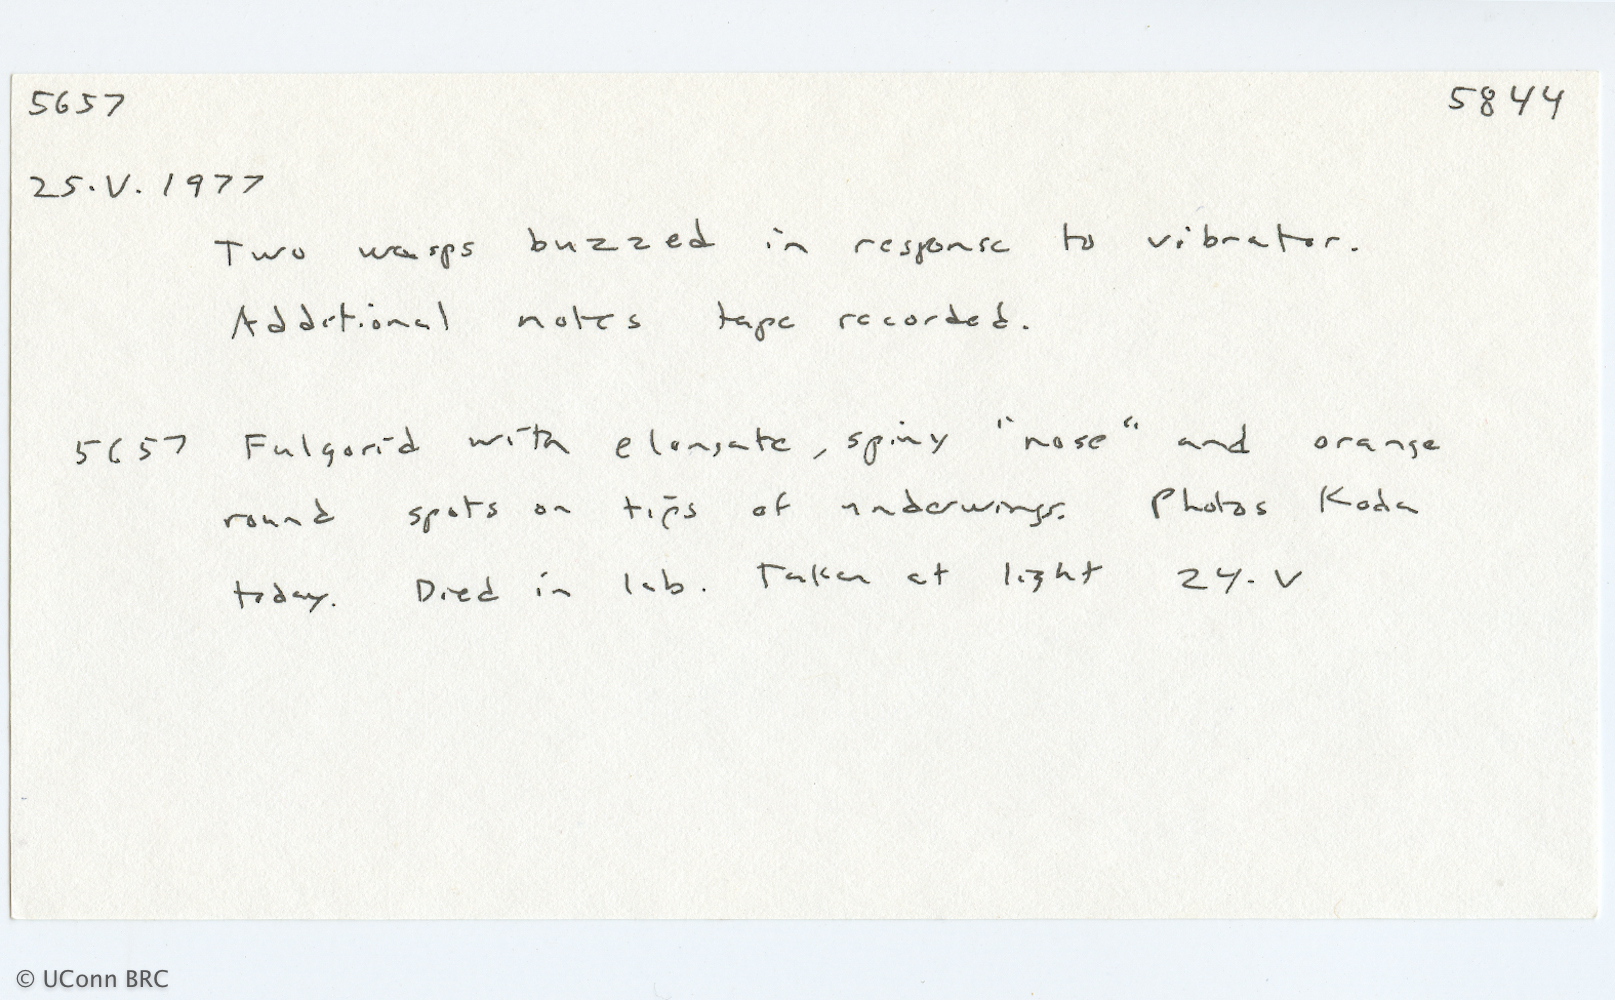 5657 5844
25.V.1977
Two wasps buzzed in response to vibrator.
Additional notes tape recorded.
5657 Fulgorid with elongate, spiny "nose" and orange
round spots on tips of underwings. Photos Koda
today. Died in lab. Taken at light 24.V
© UConn BRC